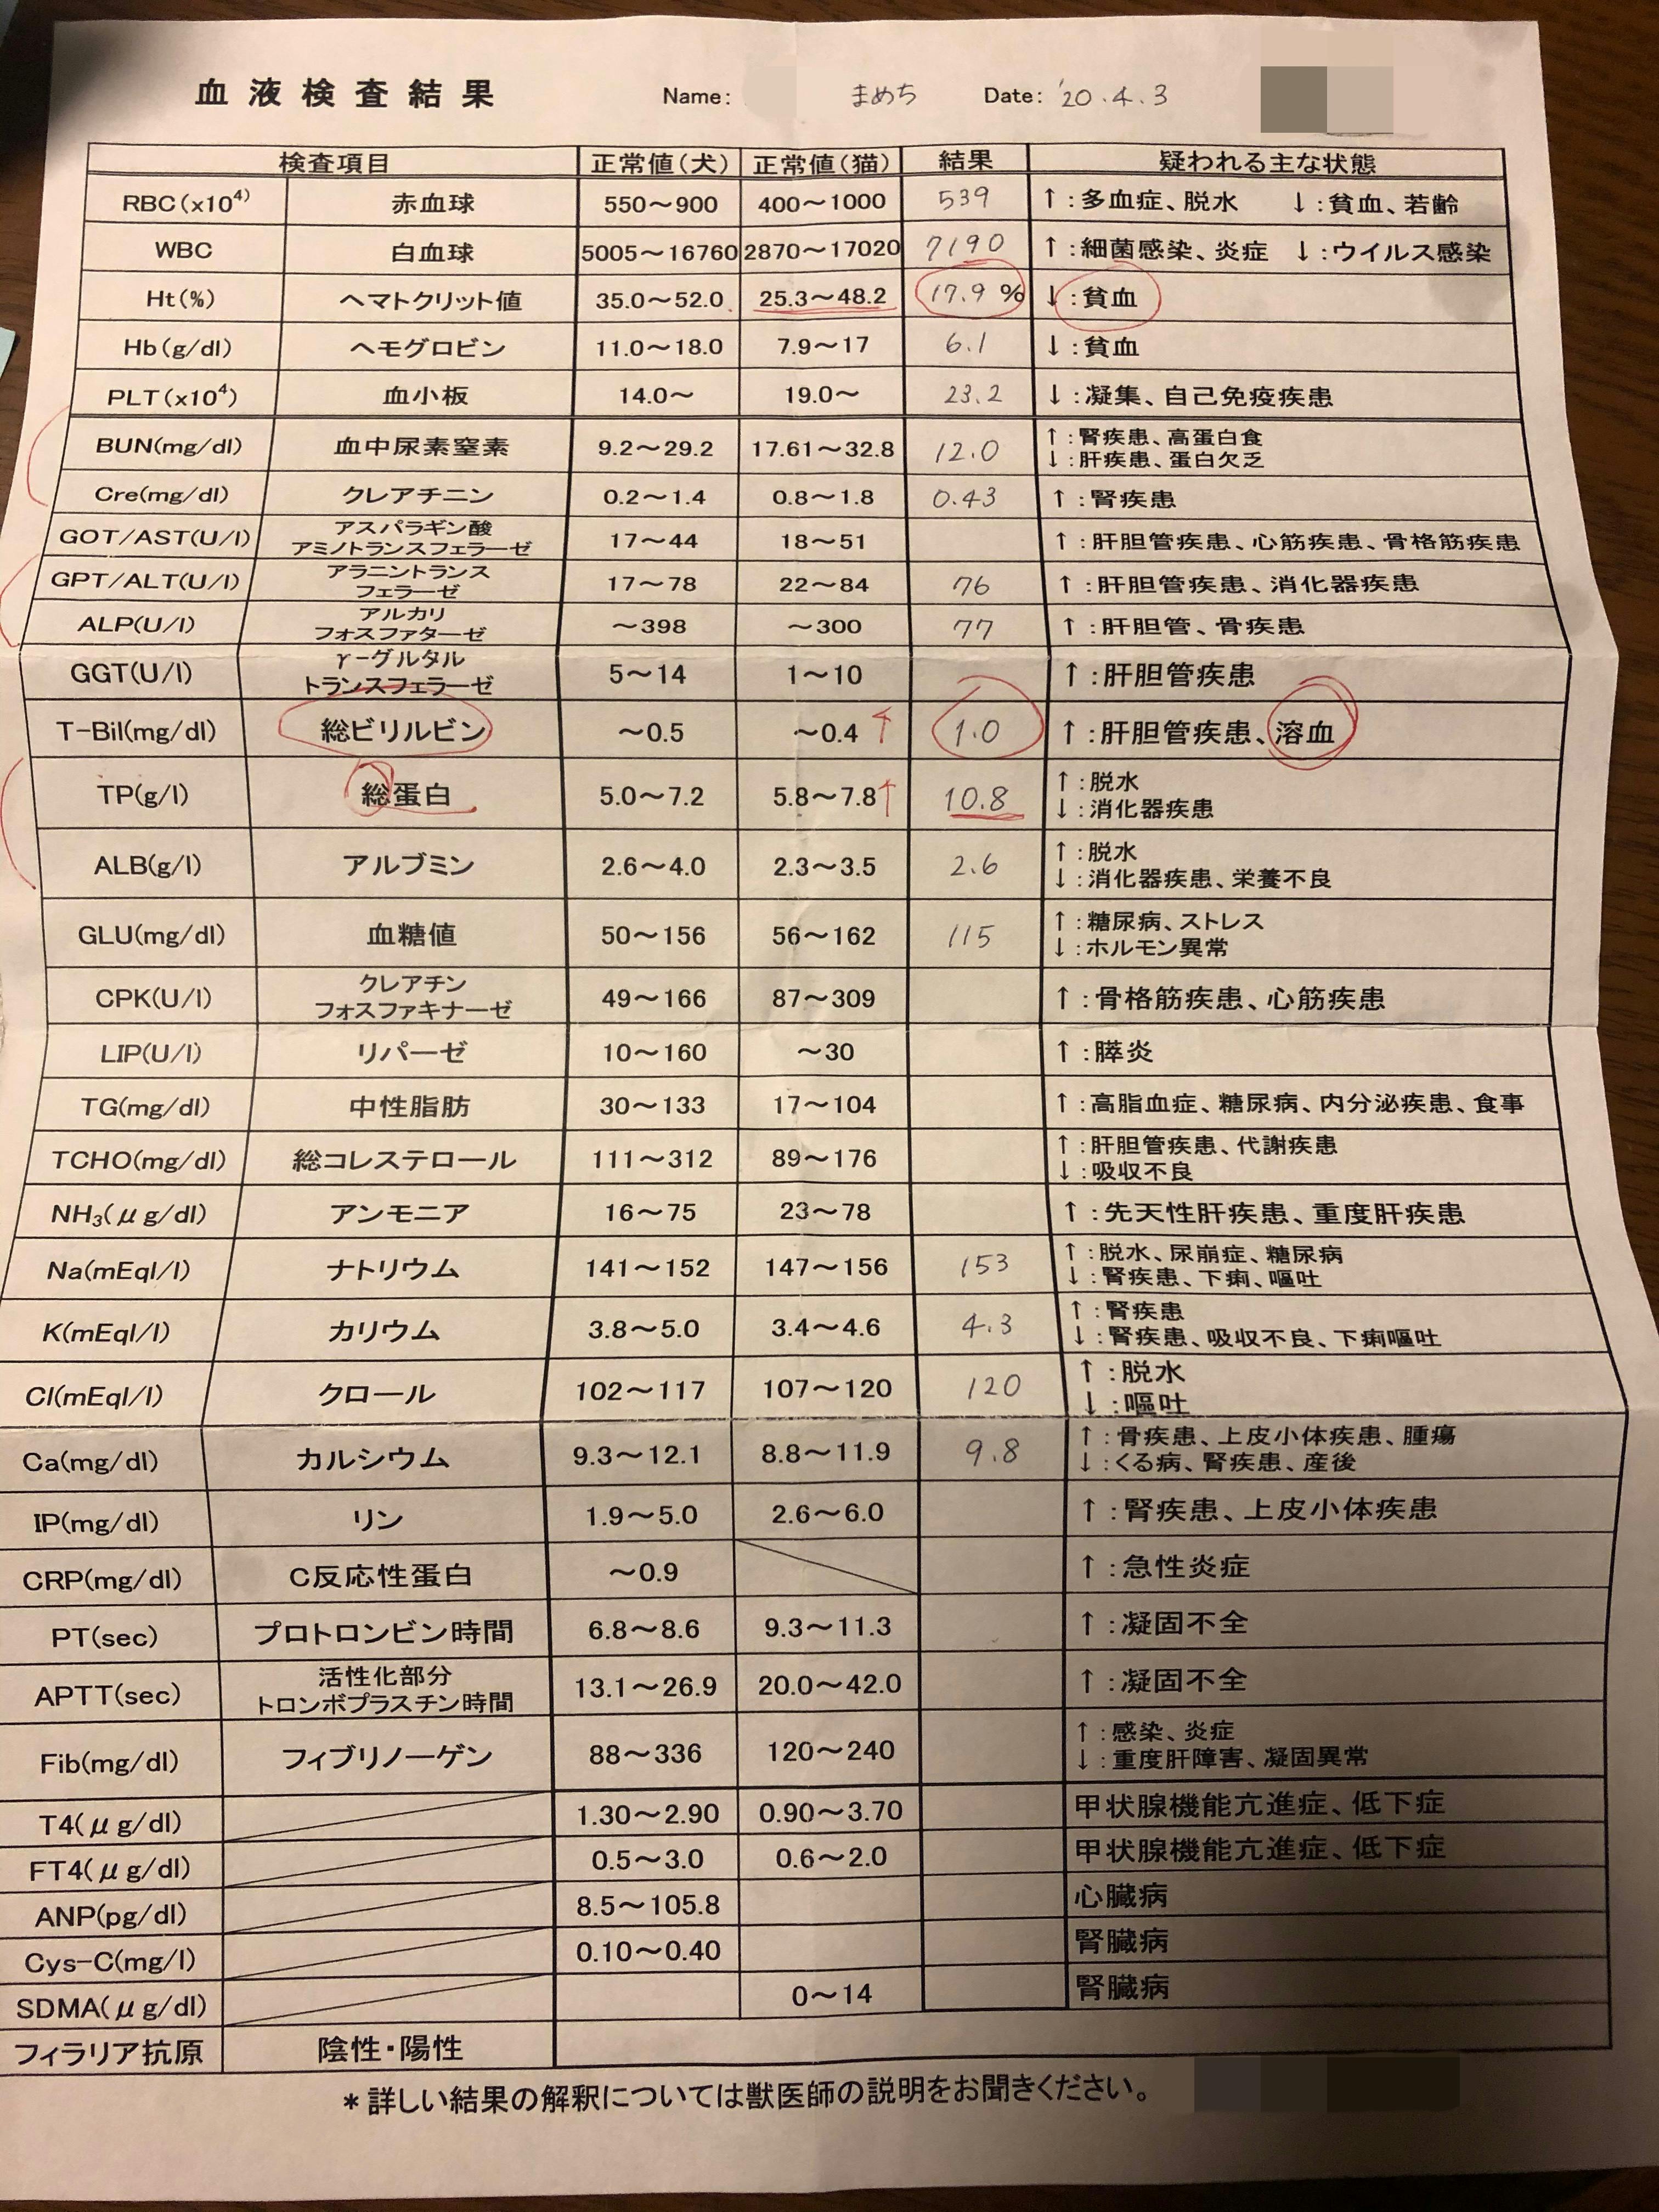 血液検査結果 Name: まめち Date: '20.4.3
検査項目 正常値(犬) 正常値(猫) 結果 疑われる主な状態
RBC(x10⁴) 赤血球 550～900 400～1000 539 ↑:多血症、脱水 ↓:貧血、若齢
WBC 白血球 5005～16760 2870～17020 7190 ↑:細菌感染、炎症 ↓:ウイルス感染
Ht(%) ヘマトクリット値 35.0～52.0 25.3～48.2 17.9% ↓:貧血
Hb(g/dl) ヘモグロビン 11.0～18.0 7.9～17 6.1 ↓:貧血
PLT(x10⁴) 血小板 14.0～ 19.0～ 23.2 ↓:凝集、自己免疫疾患
BUN(mg/dl) 血中尿素窒素 9.2～29.2 17.61～32.8 12.0 ↑:腎疾患、高蛋白食
↓:肝疾患、蛋白欠乏
Cre(mg/dl) クレアチニン 0.2～1.4 0.8～1.8 0.43 ↑:腎疾患
GOT/AST(U/l) アスパラギン酸
アミノトランスフェラーゼ 17～44 18～51 ↑:肝胆管疾患、心筋疾患、骨格筋疾患
GPT/ALT(U/l) アラニントランス
フェラーゼ 17～78 22～84 76 ↑:肝胆管疾患、消化器疾患
ALP(U/l) アルカリ
フォスファターゼ ～398 ～300 77 ↑:肝胆管、骨疾患
GGT(U/l) γ-グルタル
トランスフェラーゼ 5～14 1～10 ↑:肝胆管疾患
T-Bil(mg/dl) 総ビリルビン ～0.5 ～0.4 ↑ 1.0 ↑:肝胆管疾患、溶血
TP(g/l) 総蛋白 5.0～7.2 5.8～7.8 ↑ 10.8 ↑:脱水
↓:消化器疾患
ALB(g/l) アルブミン 2.6～4.0 2.3～3.5 2.6 ↑:脱水
↓:消化器疾患、栄養不良
GLU(mg/dl) 血糖値 50～156 56～162 115 ↑:糖尿病、ストレス
↓:ホルモン異常
CPK(U/l) クレアチン
フォスファキナーゼ 49～166 87～309 ↑:骨格筋疾患、心筋疾患
LIP(U/l) リパーゼ 10～160 ～30 ↑:膵炎
TG(mg/dl) 中性脂肪 30～133 17～104 ↑:高脂血症、糖尿病、内分泌疾患、食事
TCHO(mg/dl) 総コレステロール 111～312 89～176 ↑:肝胆管疾患、代謝疾患
↓:吸収不良
NH₃(μg/dl) アンモニア 16～75 23～78 ↑:先天性肝疾患、重度肝疾患
Na(mEql/l) ナトリウム 141～152 147～156 153 ↑:脱水、尿崩症、糖尿病
↓:腎疾患、下痢、嘔吐
K(mEql/l) カリウム 3.8～5.0 3.4～4.6 4.3 ↑:腎疾患
↓:腎疾患、吸収不良、下痢嘔吐
Cl(mEql/l) クロール 102～117 107～120 120 ↑:脱水
↓:嘔吐
Ca(mg/dl) カルシウム 9.3～12.1 8.8～11.9 9.8 ↑:骨疾患、上皮小体疾患、腫瘍
↓:くる病、腎疾患、産後
IP(mg/dl) リン 1.9～5.0 2.6～6.0 ↑:腎疾患、上皮小体疾患
CRP(mg/dl) C反応性蛋白 ～0.9 ↑:急性炎症
PT(sec) プロトロンビン時間 6.8～8.6 9.3～11.3 ↑:凝固不全
APTT(sec) 活性化部分
トロンボプラスチン時間 13.1～26.9 20.0～42.0 ↑:凝固不全
Fib(mg/dl) フィブリノーゲン 88～336 120～240 ↑:感染、炎症
↓:重度肝障害、凝固異常
T4(μg/dl) 1.30～2.90 0.90～3.70 甲状腺機能亢進症、低下症
FT4(μg/dl) 0.5～3.0 0.6～2.0 甲状腺機能亢進症、低下症
ANP(pg/dl) 8.5～105.8 心臓病
Cys-C(mg/l) 0.10～0.40 腎臓病
SDMA(μg/dl) 0～14 腎臓病
フィラリア抗原 陰性・陽性
*詳しい結果の解釈については獣医師の説明をお聞きください。